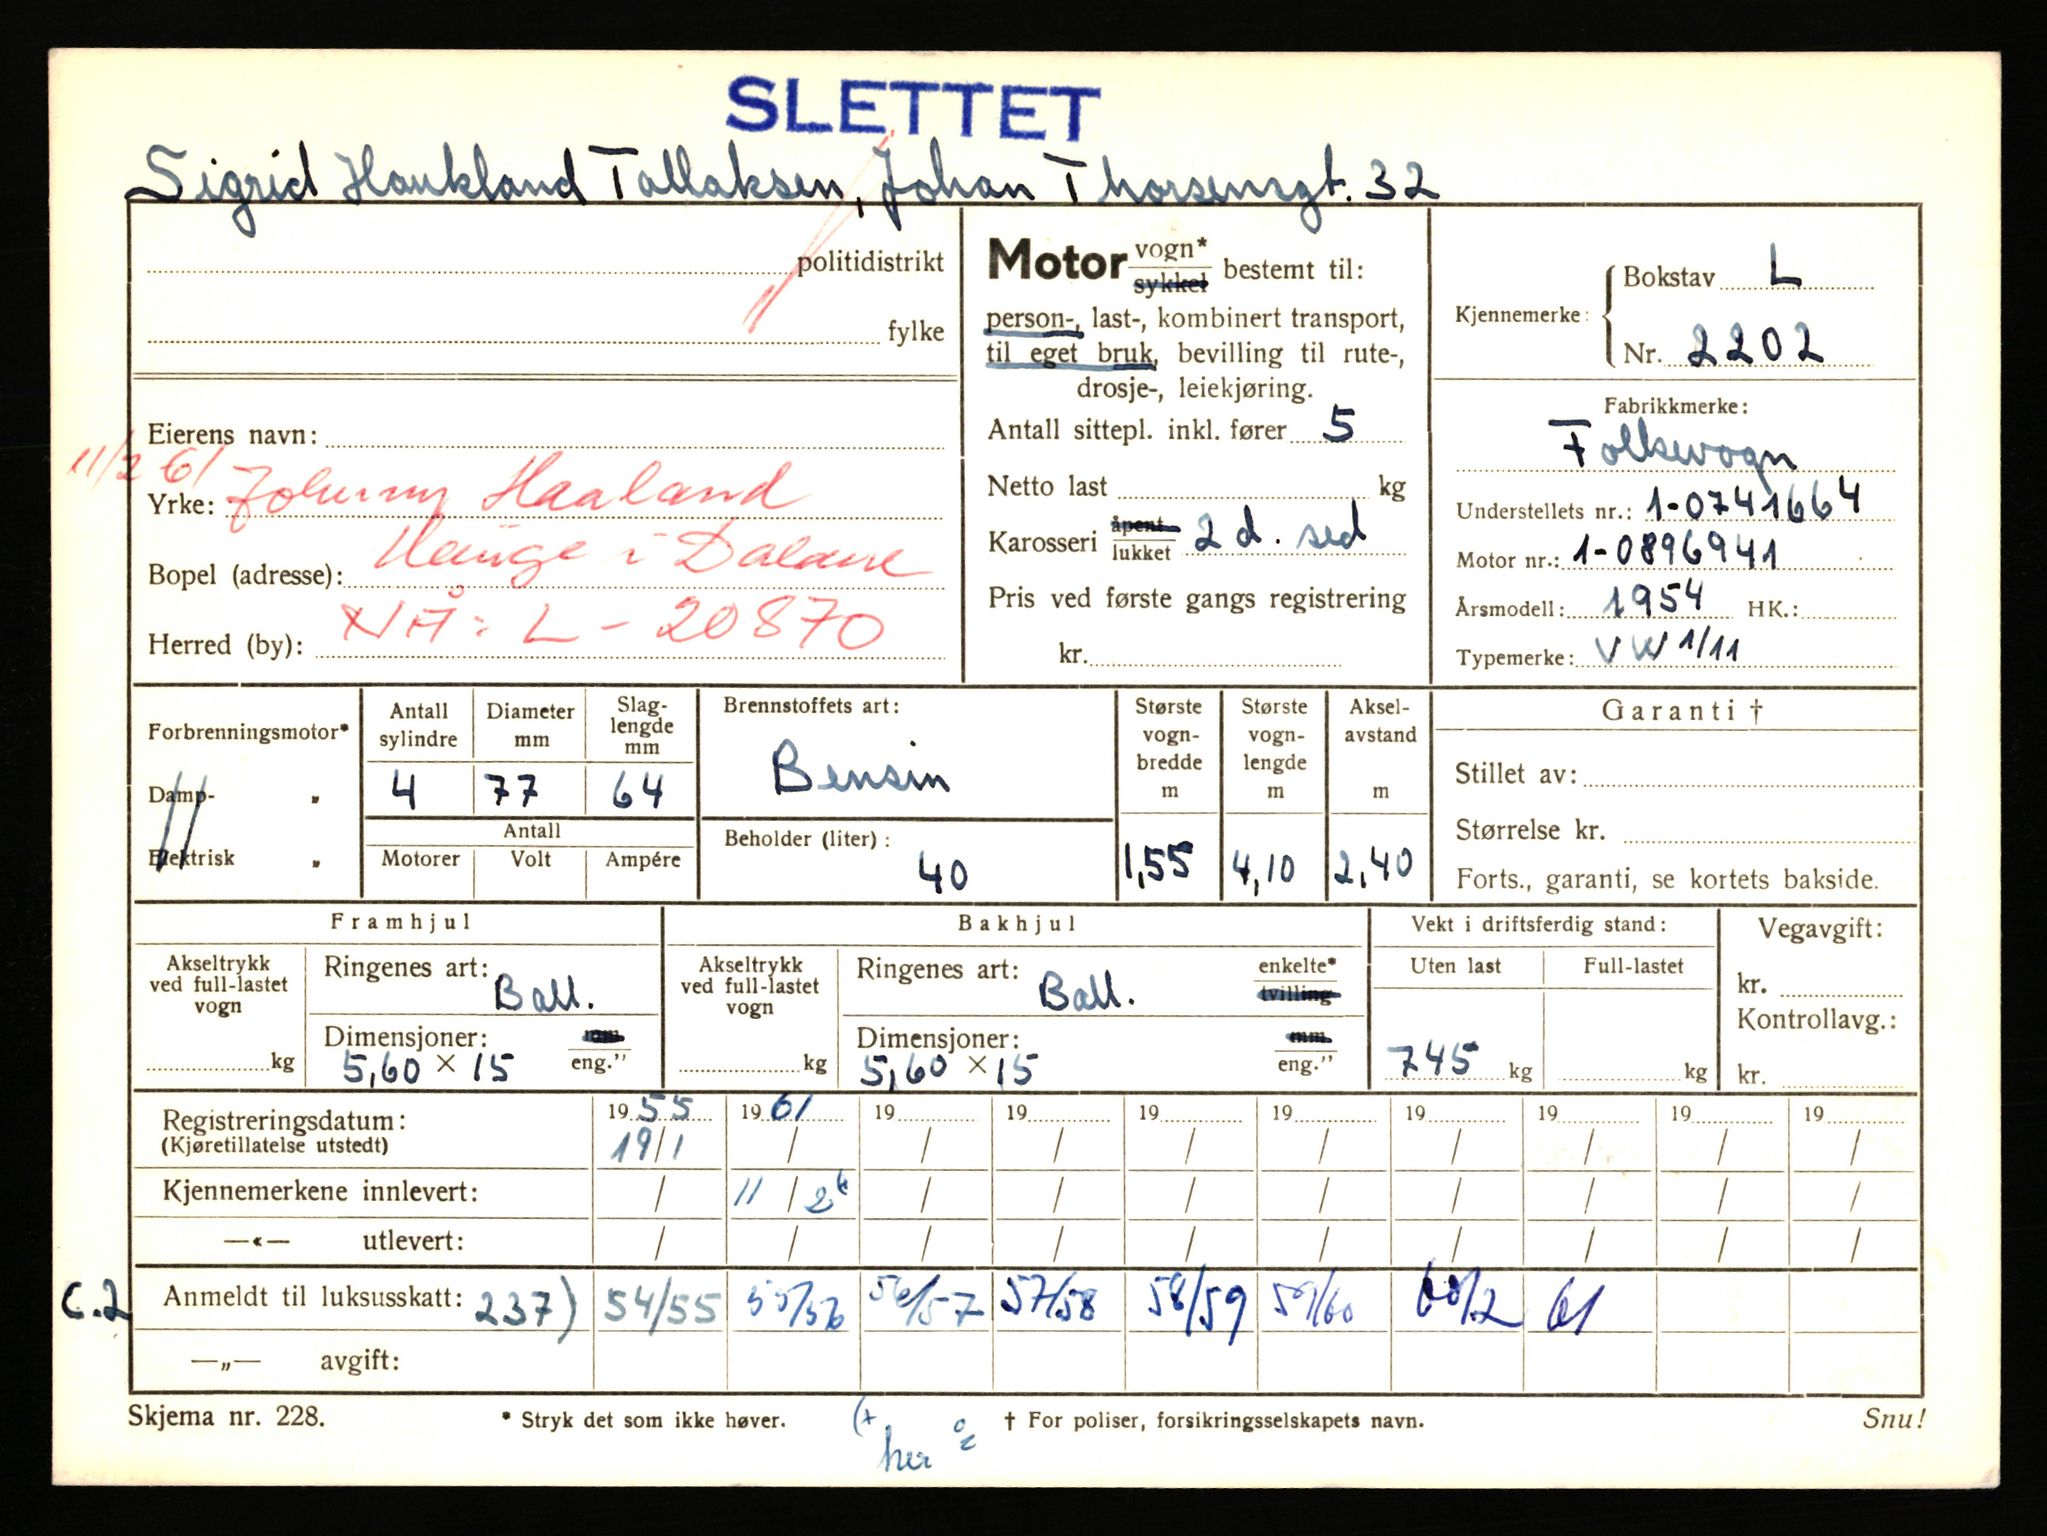 SLETTET
Sigrid Haukland Tallaksen, Johan Thorsensgt. 32
politidistrikt
fylke
Eierens navn:
11/2 61
Yrke: Johnny Haaland
Bopel (adresse): Heuge i Dalane
Herred (by): NÅ: L - 20870
Motor vogn* sykkel bestemt til:
person-, last-, kombinert transport,
til eget bruk, bevilling til rute-,
drosje-, leiekjøring.
Antall sittepl. inkl. fører 5
Netto last kg
Karosseri åpent lukket 2 d. sed
Pris ved første gangs registrering
kr.
Kjennemerke: Bokstav L
Nr. 2202
Fabrikkmerke:
Folkevogn
Understellets nr.: 1-0741664
Motor nr.: 1-0896941
Årsmodell: 1954 HK.:
Typemerke: VW 1/11
Forbrenningsmotor*
Damp- „
Elektrisk „
Antall sylindre
4
Diameter mm
77
Slaglengde mm
64
Antall
Motorer Volt Ampére
Brennstoffets art:
Bensin
Beholder (liter):
40
Største vognbredde m
1,55
Største vognlengde m
4,10
Akselavstand m
2,40
Garanti †
Stillet av:
Størrelse kr.
Forts., garanti, se kortets bakside.
Framhjul
Akseltrykk ved full-lastet vogn
kg
Ringenes art: Ball.
Dimensjoner: mm
5,60 × 15 eng."
Bakhjul
Akseltrykk ved full-lastet vogn
kg
Ringenes art: Ball. enkelte* tvilling
Dimensjoner: mm
5,60 × 15 eng."
Vekt i driftsferdig stand:
Uten last Full-lastet
745 kg kg
Vegavgift:
kr.
Kontrollavg.:
kr.
Registreringsdatum: 19 55 19 61 19 19 19 19 19 19 19 19
(Kjøretillatelse utstedt) 19/1 / / / / / / / / /
Kjennemerkene innlevert: / 11/2 / / / / / / / /
—«— utlevert: / / / / / / / / / /
C.2 Anmeldt til luksusskatt: 237) 54/55 55/56 56/57 57/58 58/59 59/60 60/2 61
—„— avgift:
Skjema nr. 228. * Stryk det som ikke høver. † For poliser, forsikringsselskapets navn. Snu!
her